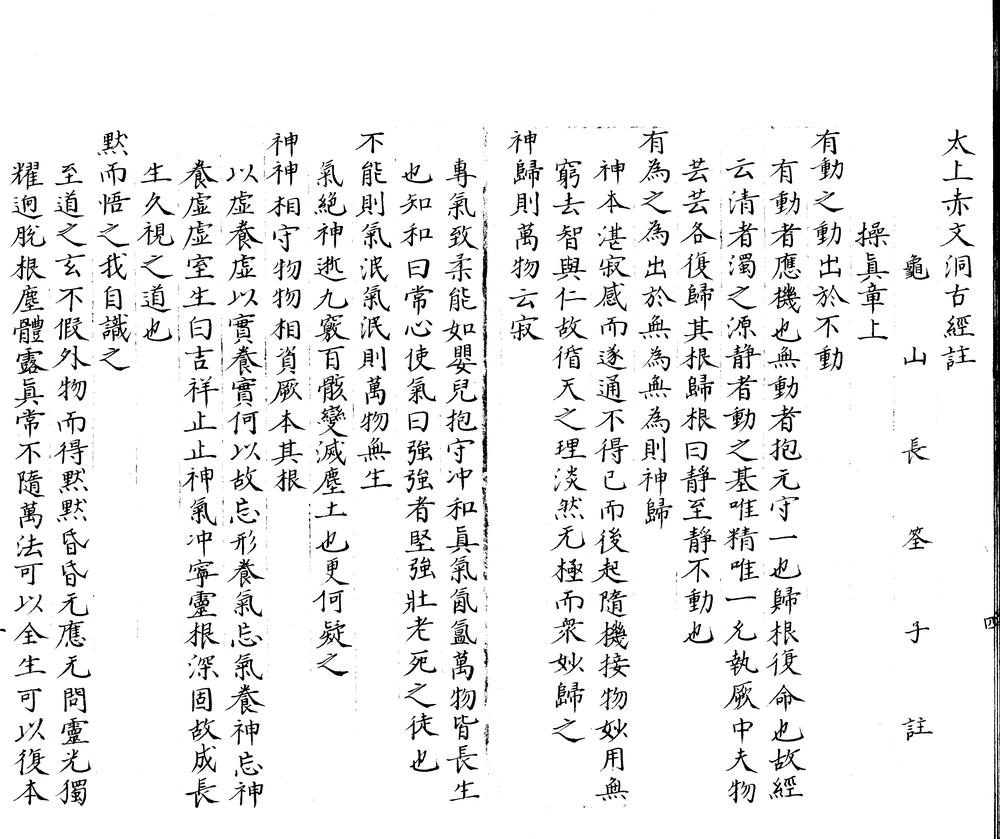 太上赤文洞古經註
龜山長筌子註
操眞章上
有動之動出於不動
有動者應機也無動者抱元守一也歸根復命也故經
云清者濁之源静者動之基唯精唯一允執厥中夫物
芸芸各復歸其根歸根曰静至静不動也
有為之為出於無為無為則神歸
神本湛寂感而遂通不得已而後起隨機接物妙用無
窮去智與仁故循天之理淡然无極而衆妙歸之
神歸則萬物云寂
專氣致柔能如嬰兒抱守冲和眞氣氤氳萬物皆長生
也知和曰常心使氣曰強強者堅強壯老死之徒也
不能則氣泯氣泯則萬物無生
氣絶神逝九竅百骸變滅塵土也更何疑之
神神相守物物相資厥本其根
以虛養虛以實養實何以故忘形養氣忘氣養神忘神
養虛虛室生曰吉祥止止神氣冲寧靈根深固故成長
生久視之道也
默而悟之我自識之
至道之玄不假外物而得默默昏昏无應无問靈光獨
耀逈脫根塵體露眞常不隨萬法可以全生可以復本
四